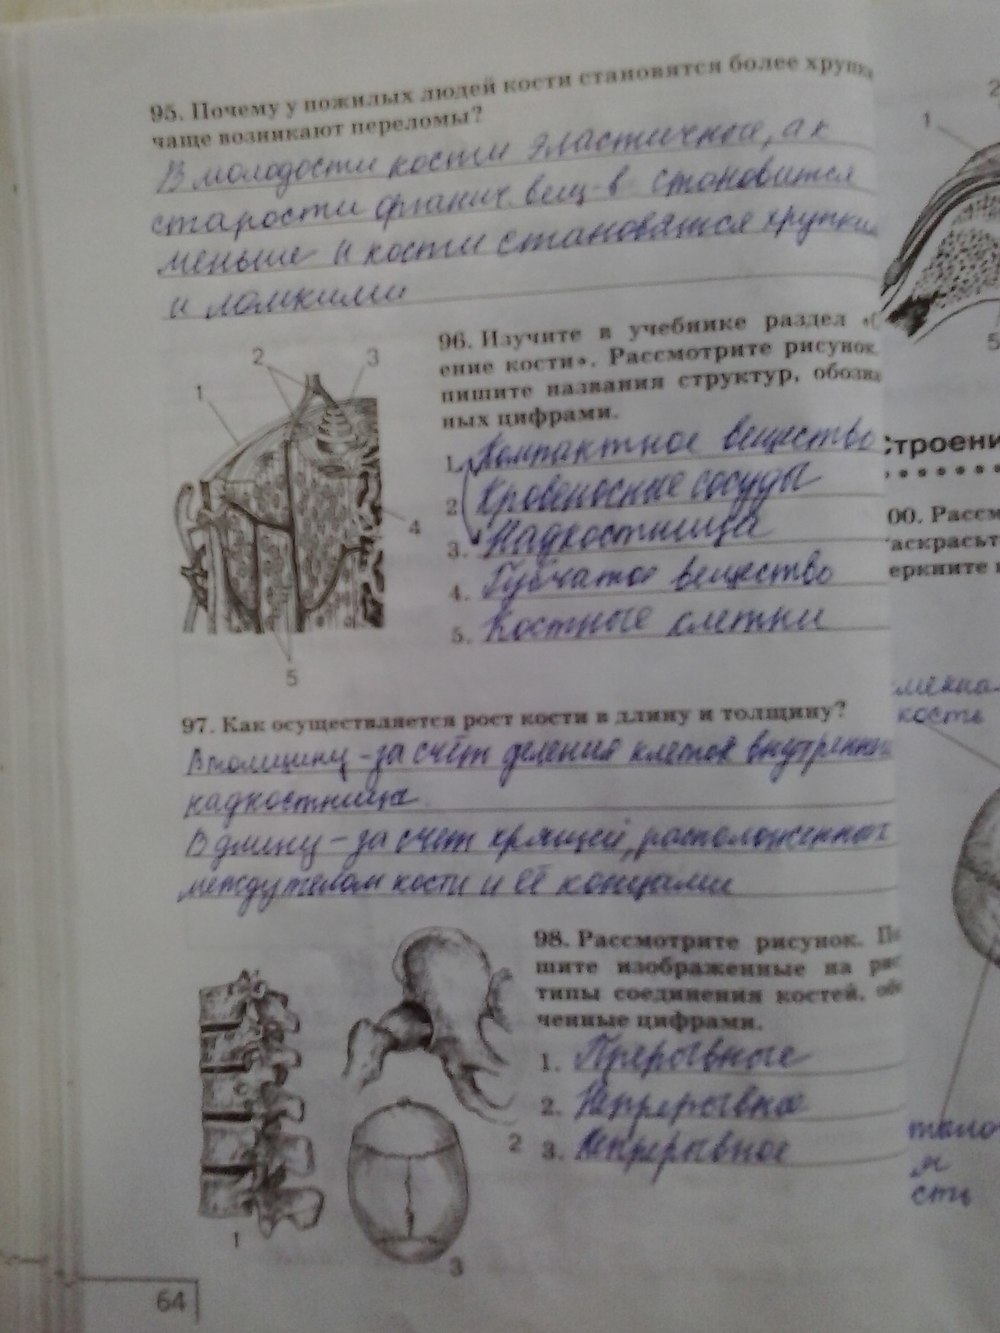 95. Почему у пожилых людей кости становятся более хрупки
чаще возникают переломы?
В молодости кости эластичные, а к
старости органич. вещ-в становится
меньше и кости становятся хрупким
и ломкими
96. Изучите в учебнике раздел «С
ение кости». Рассмотрите рисунок.
пишите названия структур, обозна
ных цифрами.
1. Компактное вещество
2 Кровеносные сосуды
3. Надкостница
4. Губчатое вещество
5. Костные клетки
1
2
3
4
5
97. Как осуществляется рост кости в длину и толщину?
В толщину - за счёт деления клеток внутренни
надкостнице.
В длину - за счёт хрящей, расположенных
между телом кости и её концами
98. Рассмотрите рисунок. По
шите изображенные на рис
типы соединения костей, обо
ченные цифрами.
1. Прерывные
2. Непрерывное
3. Непрерывное
1
2
3
64
1
2
5
Строени
00. Рассм
аскрасьт
еркните
кость
тело
я
сть